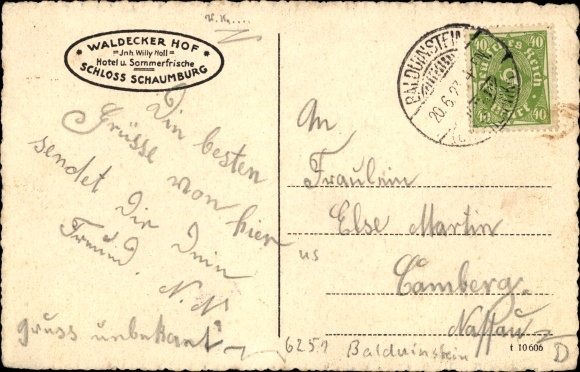 WALDECKER HOF
Jnh. Willy Noll
Hotel u. Sommerfrische
SCHLOSS SCHAUMBURG
Die besten
Grüsse von hier
sendet Dir Dein
Freund
N.N.
Gruss unbekant
BALDUINSTEIN
20.6.23
40 Deutsches Reich 40
An
Fräulein
Else Martin
us
Camberg.
Nassau
6251 Balduinstein
t 10606
D